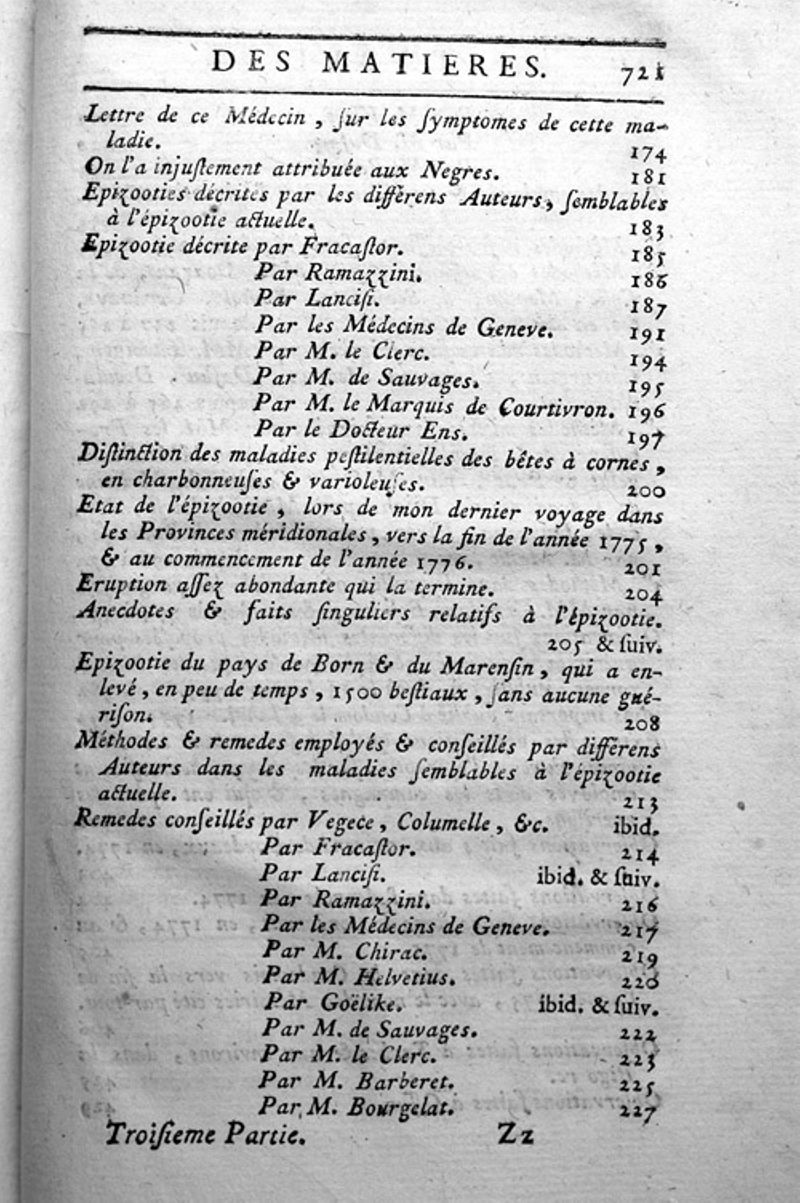 DES MATIERES. 721
Lettre de ce Médecin, ſur les ſymptomes de cette ma-
ladie. 174
On l'a injuſtement attribuée aux Negres. 181
Epizooties décrites par les différens Auteurs, ſemblables
à l'épizootie actuelle. 183
Epizootie décrite par Fracaſtor. 185
Par Ramazzini. 186
Par Lanciſi. 187
Par les Médecins de Geneve. 191
Par M. le Clerc. 194
Par M. de Sauvages. 195
Par M. le Marquis de Courtivron. 196
Par le Docteur Ens. 197
Diſtinction des maladies peſtilentielles des bêtes à cornes,
en charbonneuſes & varioleuſes. 200
Etat de l'épizootie, lors de mon dernier voyage dans
les Provinces méridionales, vers la fin de l'année 1775,
& au commencement de l'année 1776. 201
Eruption aſſez abondante qui la termine. 204
Anecdotes & faits ſinguliers relatifs à l'épizootie.
205 & ſuiv.
Epizootie du pays de Born & du Marenſin, qui a en-
levé, en peu de temps, 1500 beſtiaux, ſans aucune gué-
riſon. 208
Méthodes & remedes employés & conſeillés par différens
Auteurs dans les maladies ſemblables à l'épizootie
actuelle. 213
Remedes conſeillés par Vegece, Columelle, &c. ibid.
Par Fracaſtor. 214
Par Lanciſi. ibid. & ſuiv.
Par Ramazzini. 216
Par les Médecins de Geneve. 217
Par M. Chirac. 219
Par M. Helvetius. 220
Par Goëlike. ibid. & ſuiv.
Par M. de Sauvages. 222
Par M. le Clerc. 223
Par M. Barberet. 225
Par M. Bourgelat. 227
Troiſieme Partie. Zz